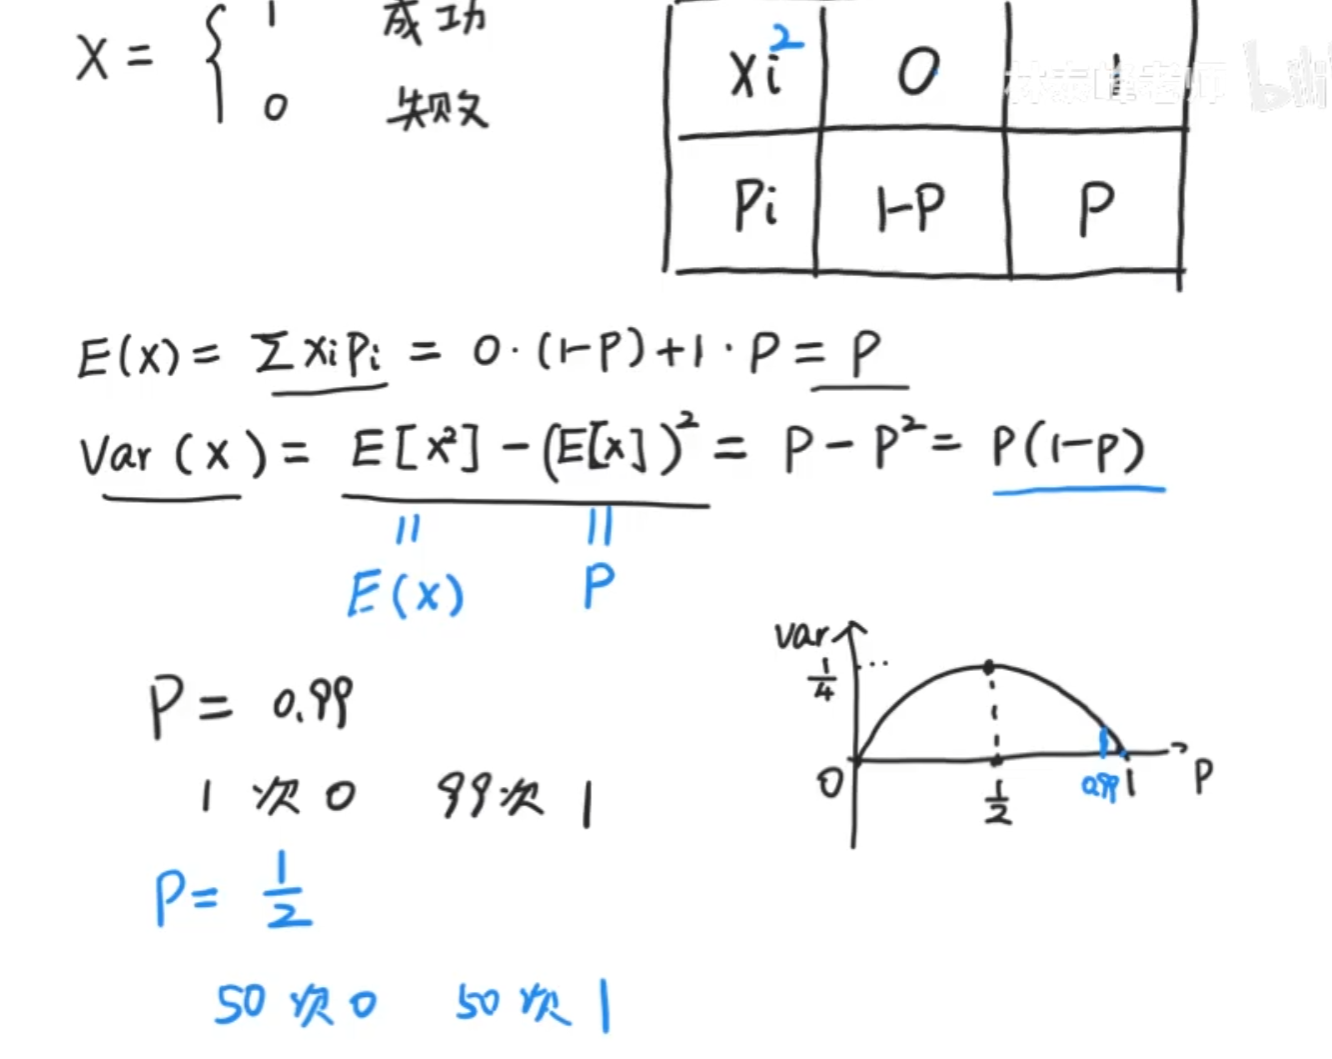 X = { 1 成功
0 失败
xi² 0 1
Pi 1-P P
林泰峰老师 bilibili
E(x) = Σxipi = 0·(1-P)+1·P = P
Var(x) = E[x²] - (E[x])² = P - P² = P(1-P)
|| ||
E(x) P
P = 0.99
1次0 99次1
P = 1/2
50次0 50次1
Var
1/4 ··
0 1/2 0.99 1 P